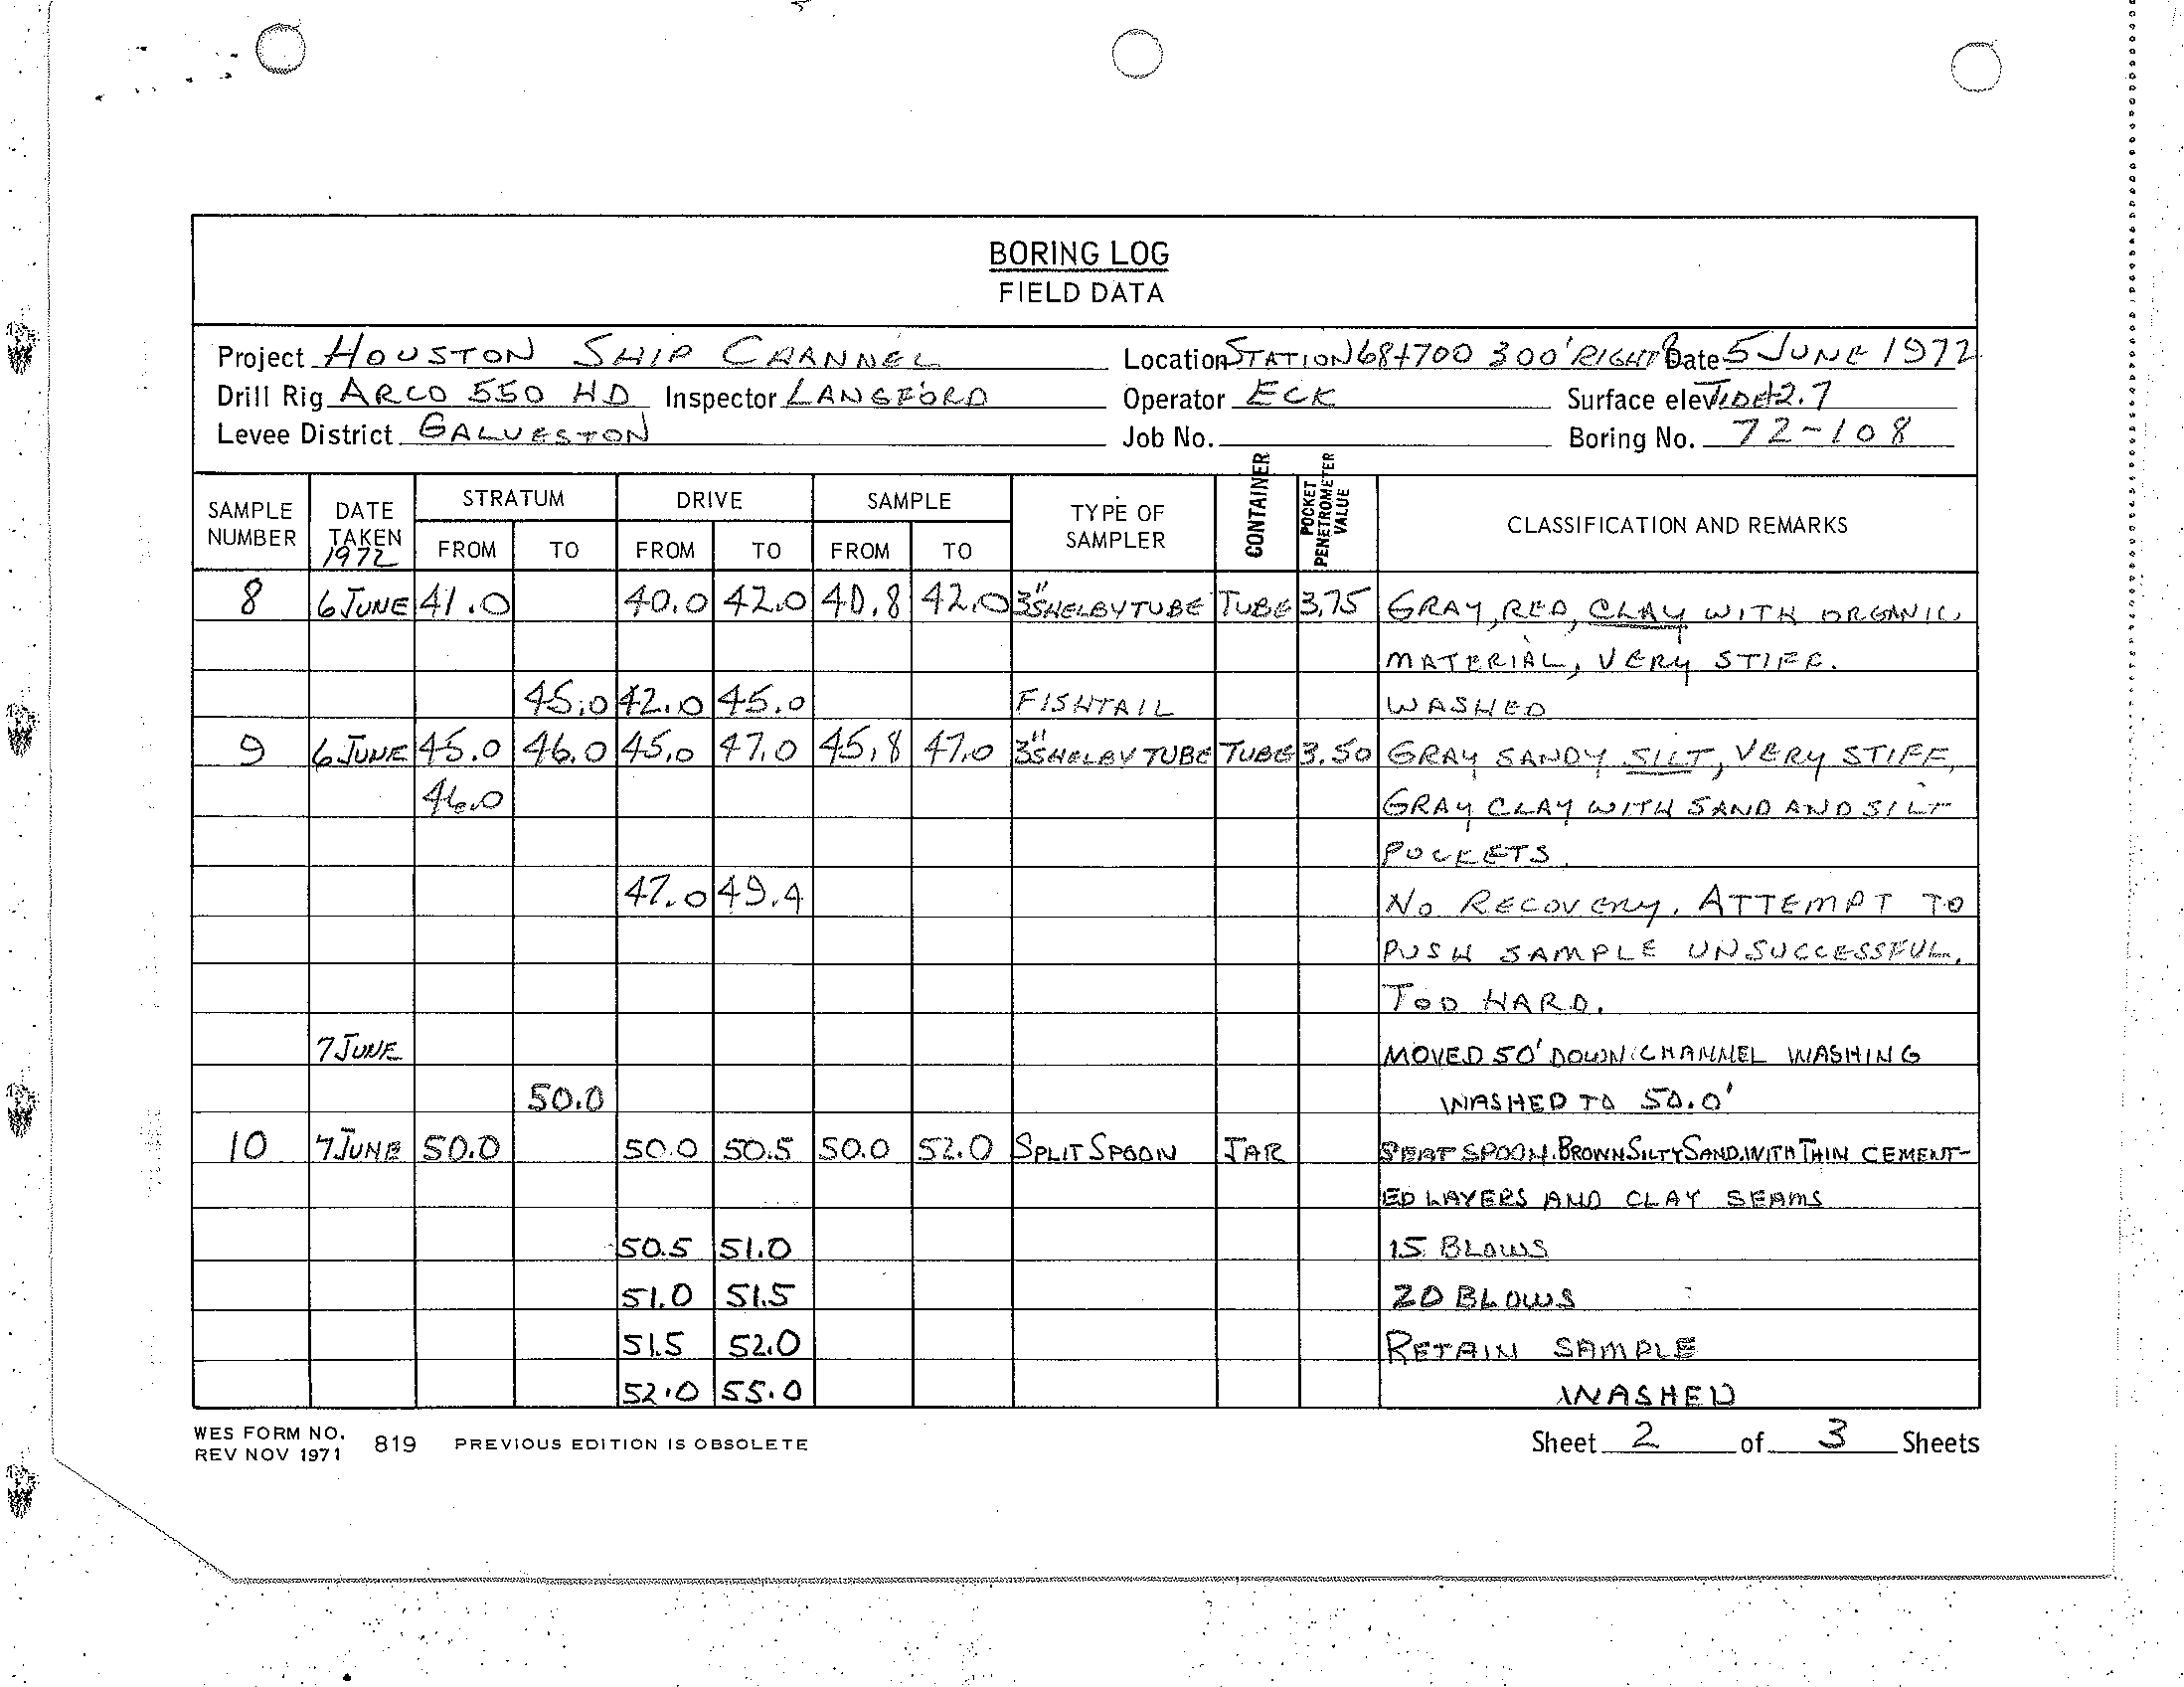 BORING LOG
FIELD DATA
Project HOUSTON SHIP CHANNEL Location STATION 68+700 300' RIGHT Date 5 JUNE 1972
Drill Rig ARCO 550 HD Inspector LANGFORD Operator ECK Surface elev TIDE+2.7
Levee District GALVESTON Job No. Boring No. 72-108
SAMPLE NUMBER DATE TAKEN 1972 STRATUM FROM TO DRIVE FROM TO SAMPLE FROM TO TYPE OF SAMPLER CONTAINER POCKET PENETROMETER VALUE CLASSIFICATION AND REMARKS
8 6 JUNE 41.0 40.0 42.0 40.8 42.0 3" SHELBY TUBE TUBE 3.75 GRAY, RED, CLAY WITH ORGANIC
MATERIAL, VERY STIFF.
45.0 42.0 45.0 FISHTAIL WASHED
9 6 JUNE 45.0 46.0 45.0 47.0 45.8 47.0 3" SHELBY TUBE TUBE 3.50 GRAY SANDY SILT, VERY STIFF,
46.0 GRAY CLAY WITH SAND AND SILT
POCKETS.
47.0 49.4 NO RECOVERY. ATTEMPT TO
PUSH SAMPLE UNSUCCESSFUL.
TOO HARD.
7 JUNE MOVED 50' DOWN CHANNEL WASHING
50.0 WASHED TO 50.0'
10 7 JUNE 50.0 50.0 50.5 50.0 52.0 SPLIT SPOON JAR SEAT SPOON. BROWN SILTY SAND. WITH THIN CEMENT-
ED LAYERS AND CLAY SEAMS
50.5 51.0 15 BLOWS
51.0 51.5 20 BLOWS
51.5 52.0 RETAIN SAMPLE
52.0 55.0 WASHED
WES FORM NO. 819 PREVIOUS EDITION IS OBSOLETE Sheet 2 of 3 Sheets
REV NOV 1971